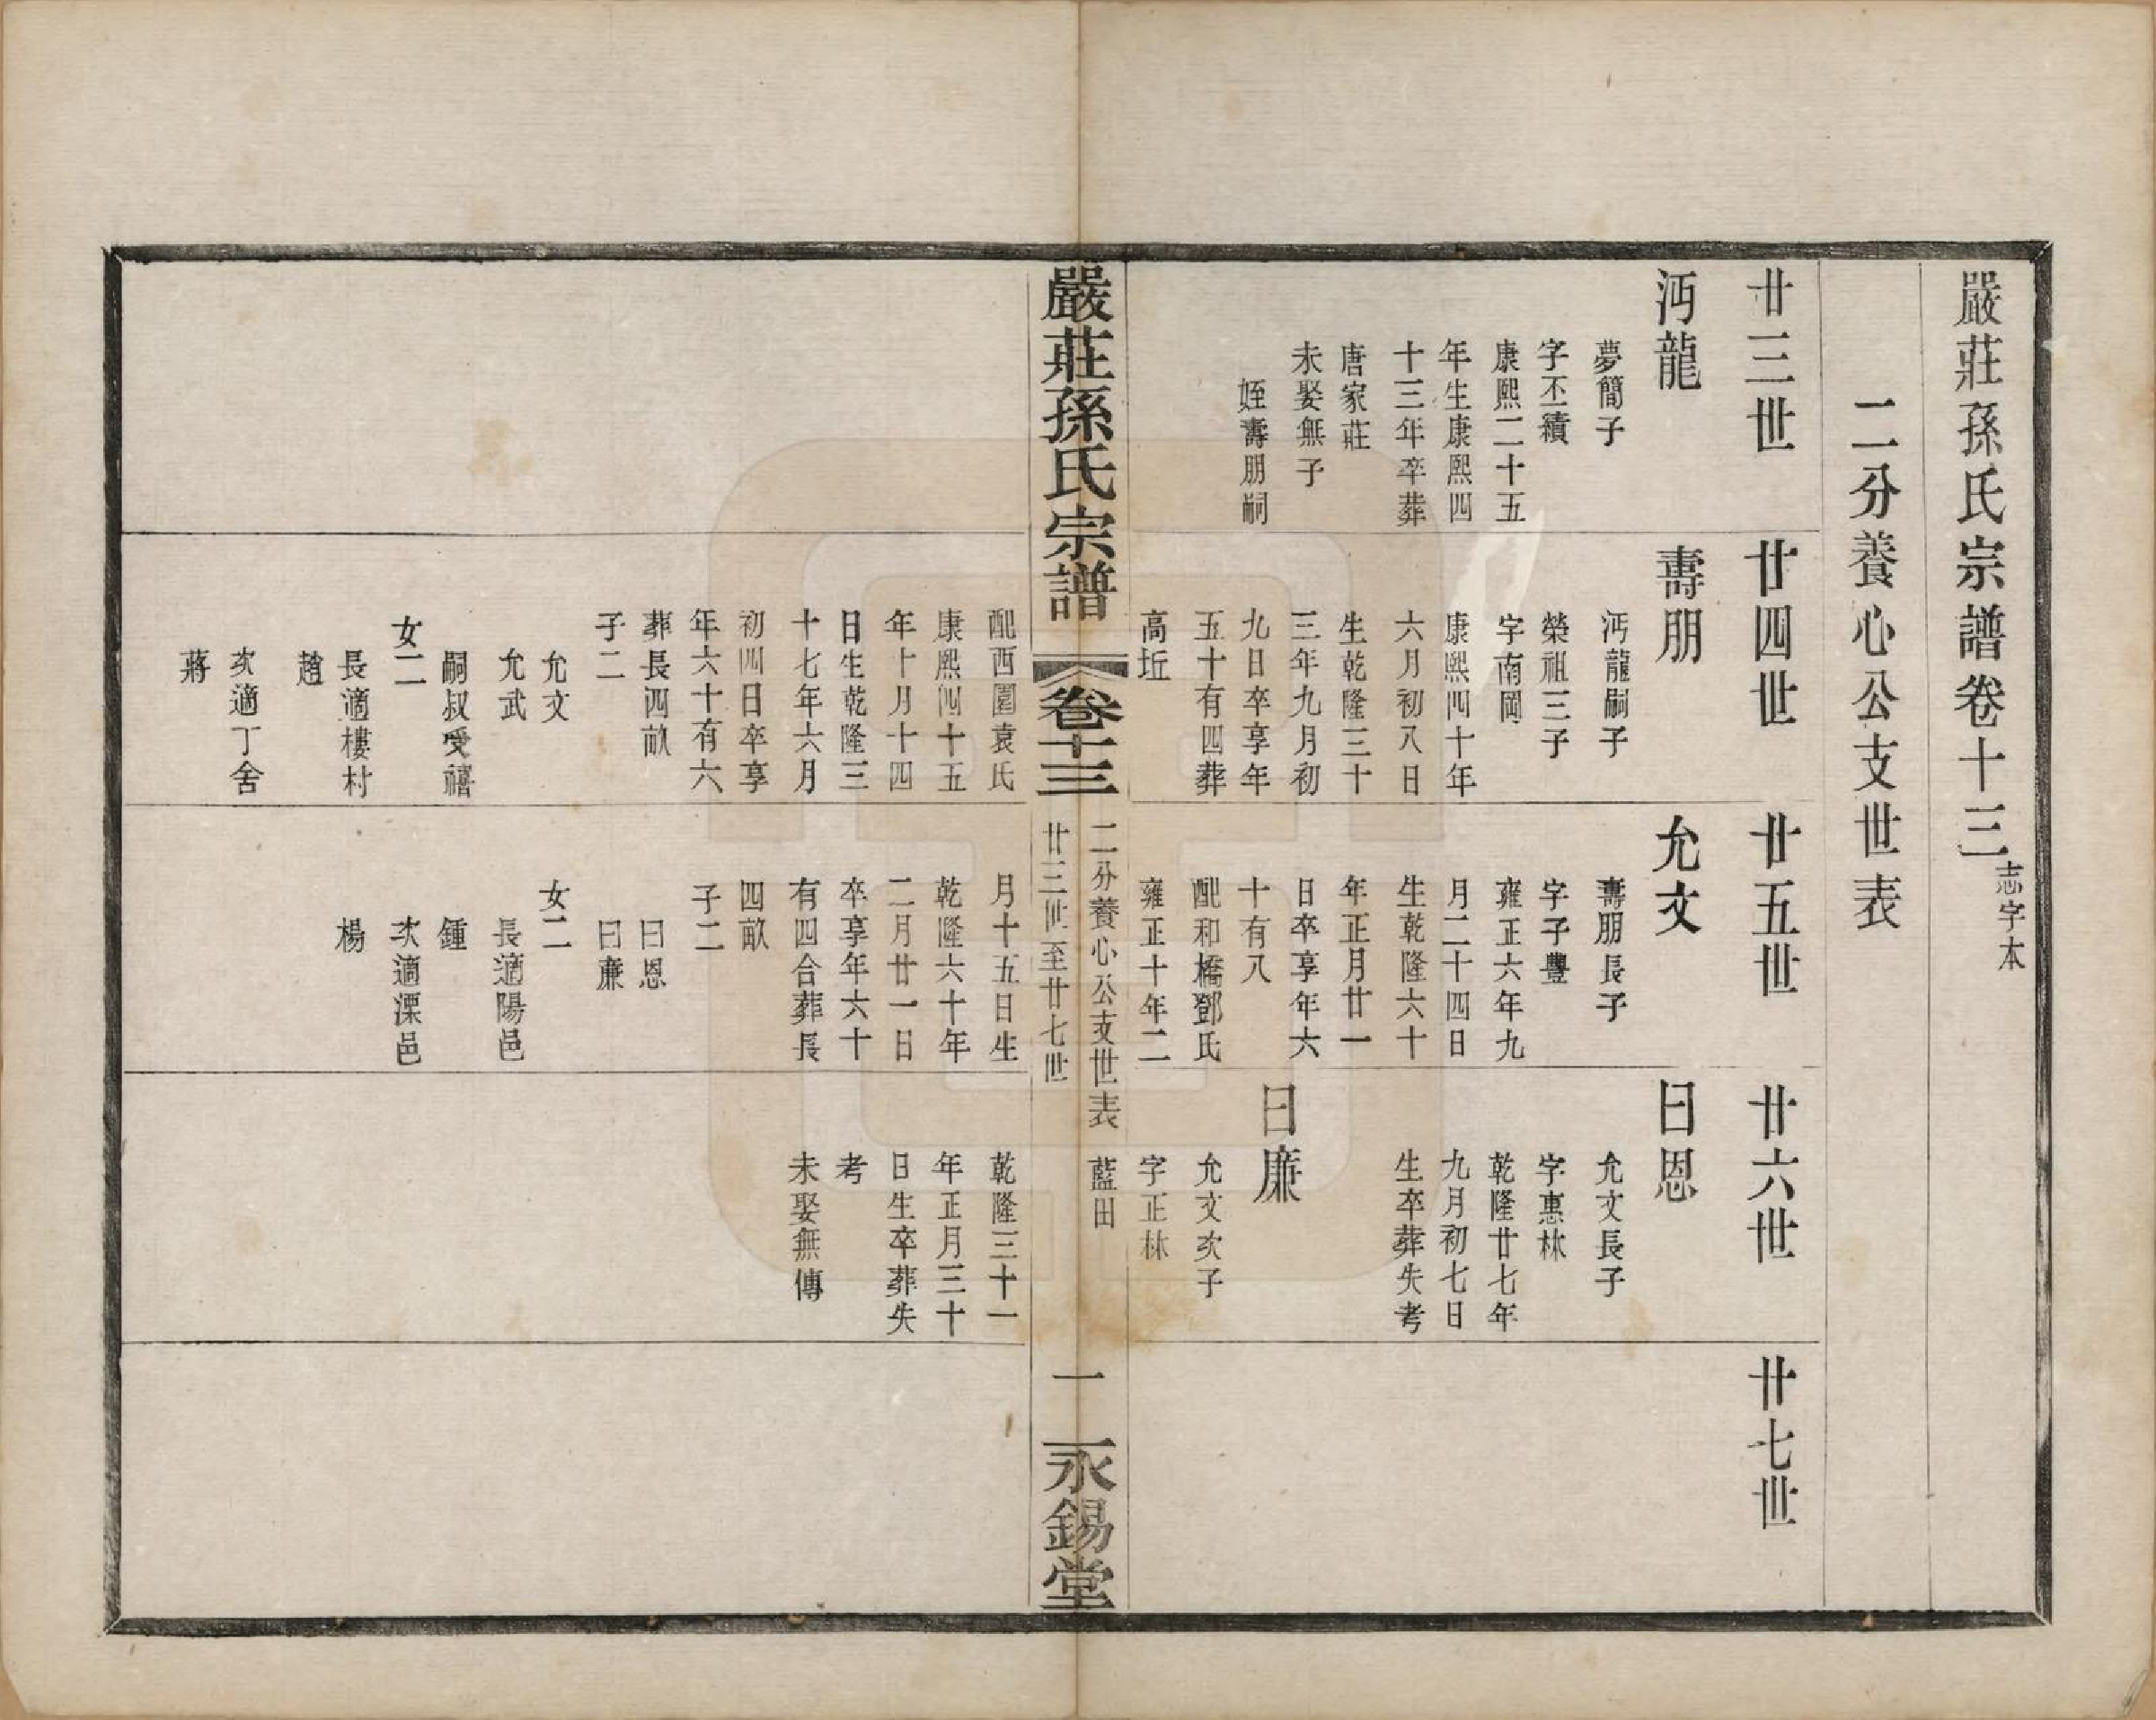 嚴莊孫氏宗譜卷十三 志字本
二分養心公支世表
廿三世
沔龍
夢簡子
字丕績
康熙二十五
年生康熙四
十三年卒葬
唐家莊
未娶無子
姪壽朋嗣
廿四世
壽朋
沔龍嗣子
榮祖三子
字南岡
康熙四十年
六月初八日
生乾隆三十
三年九月初
九日卒享年
五十有四葬
高坵
配西園袁氏
康熙四十五
年十月十四
日生乾隆三
十七年六月
初四日卒享
年六十有六
葬長四畝
子二
允文
允武
嗣叔受禧
女二
長適樓村
趙
次適丁舍
蔣
廿五世
允文
壽朋長子
字子豐
雍正六年九
月二十四日
生乾隆六十
年正月廿一
日卒享年六
十有八
配和橋鄧氏
雍正十年二
月十五日生
乾隆六十年
二月廿一日
卒享年六十
有四合葬長
四畝
子二
曰恩
曰廉
女二
長適陽邑
鍾
次適溧邑
楊
廿六世
曰恩
允文長子
字惠林
乾隆廿七年
九月初七日
生卒葬失考
曰廉
允文次子
字正林
乾隆三十一
年正月三十
日生卒葬失
考
未娶無傳
廿七世
嚴莊孫氏宗譜
卷十三
二分養心公支世表 藍田
廿三世至廿七世
一
永錫堂